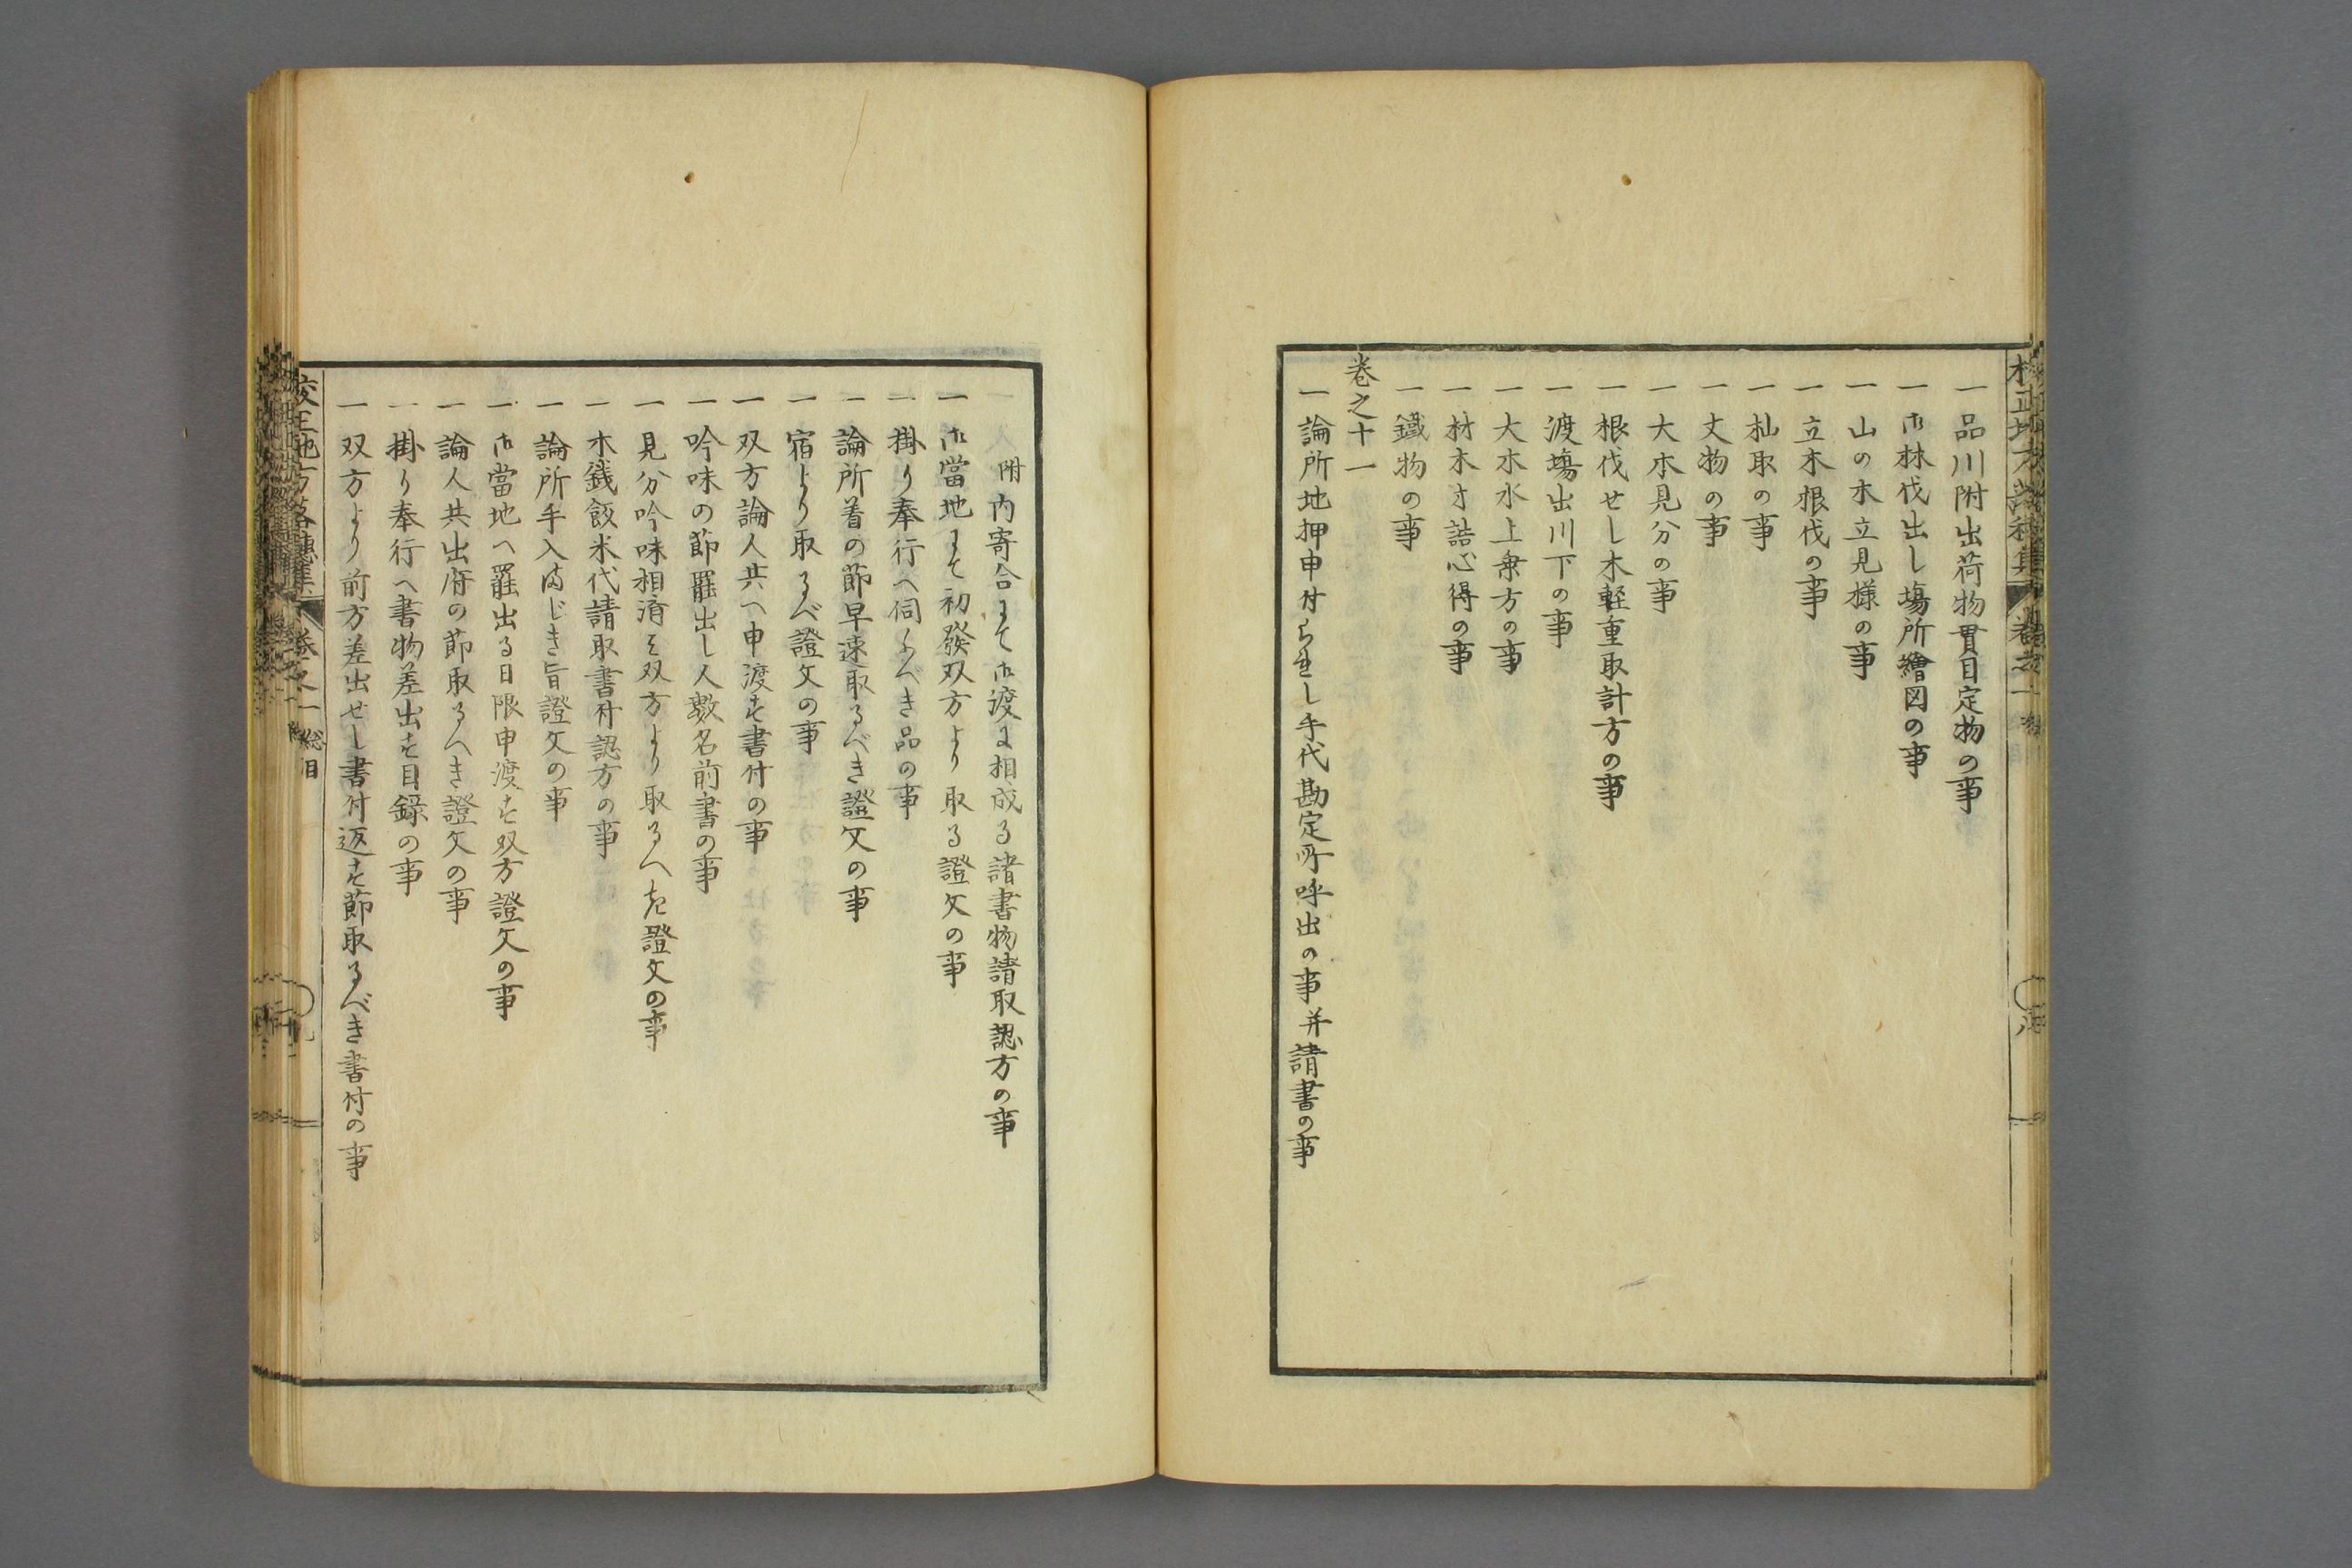 一品川附出荷物貫目定物の事
一御林伐出し場所繪図の事
一山の木立見様の事
一立木根伐の事
一杣取の事
一丈物の事
一大木見分の事
一根伐せし木軽重取計方の事
一渡場出川下の事
一大木水上乗方の事
一材木才詰心得の事
一鐵物の事
巻之十一
一論所地押申付られし手代勘定所呼出の事并請書の事
附内寄合にて御渡に相成る諸書物請取認方の事
一御當地にて初發双方より取る證文の事
一掛り奉行へ伺ふべき品の事
一論所着の節早速取るべき證文の事
一宿より取るべ證文の事
一双方論人共へ申渡す書付の事
一吟味の節罷出し人数名前書の事
一見分吟味相濟み双方より取るへき證文の事
一木銭飯米代請取書付認方の事
一論所手入まじき旨證文の事
一御當地へ罷出る日限申渡す双方證文の事
一論人共出府の節取るへき證文の事
一掛り奉行へ書物差出す目録の事
一双方より前方差出せし書付返す節取るべき書付の事
校正地方落穗集 巻之一 総目